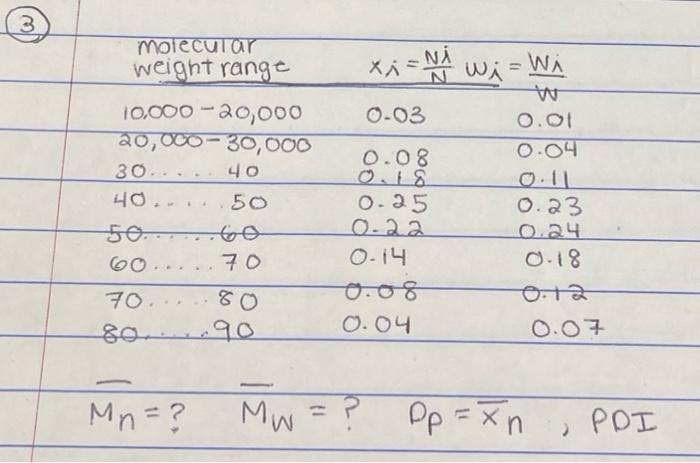 3
molecular
weight range xi = Ni/N wi = Wi/W
10.000 - 20,000 0.03 0.01
20,000 - 30,000 0.08 0.04
30..... 40 0.18 0.11
40..... 50 0.25 0.23
50...... 60 0.22 0.24
60..... 70 0.14 0.18
70..... 80 0.08 0.12
80..... 90 0.04 0.07
M̅n = ? M̅w = ? Dp = x̅n , PDI